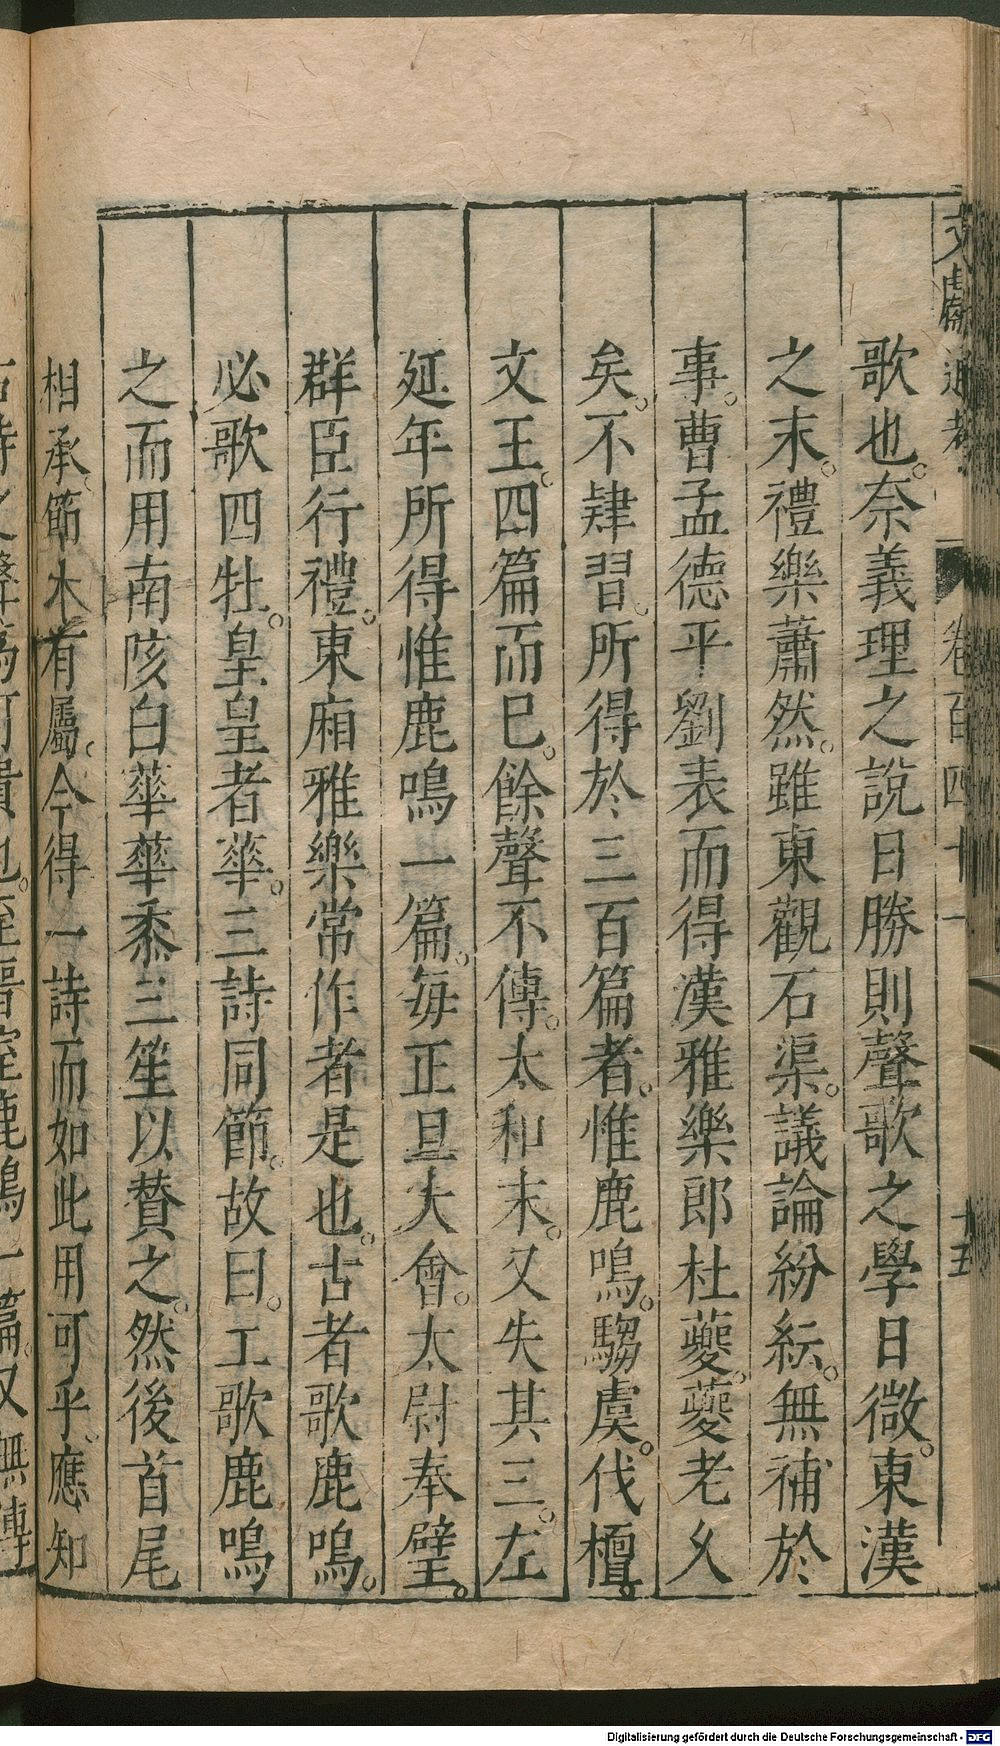 文獻通考 卷百四十一 十五
歌也。奈義理之說日勝則聲歌之學日微。東漢
之末。禮樂蕭然。雖東觀石渠。議論紛紜。無補於
事。曹孟德平劉表而得漢雅樂郎杜夔。夔老久
矣。不肄習。所得於三百篇者。惟鹿鳴。騶虞。伐檀。
文王。四篇而已。餘聲不傳。太和末。又失其三。左
延年所得惟鹿鳴一篇。每正旦大會。太尉奉璧。
群臣行禮。東廂雅樂常作者是也。古者歌鹿鳴。
必歌四牡。皇皇者華。三詩同節。故曰。工歌鹿鳴
之而用南陔白華華黍三笙以贊之。然後首尾
相承。節木有屬。今得一詩而如此用可乎。應知
古詩之聲為可貴也。至晉室鹿鳴一篇。又無傳
Digitalisierung gefördert durch die Deutsche Forschungsgemeinschaft - DFG